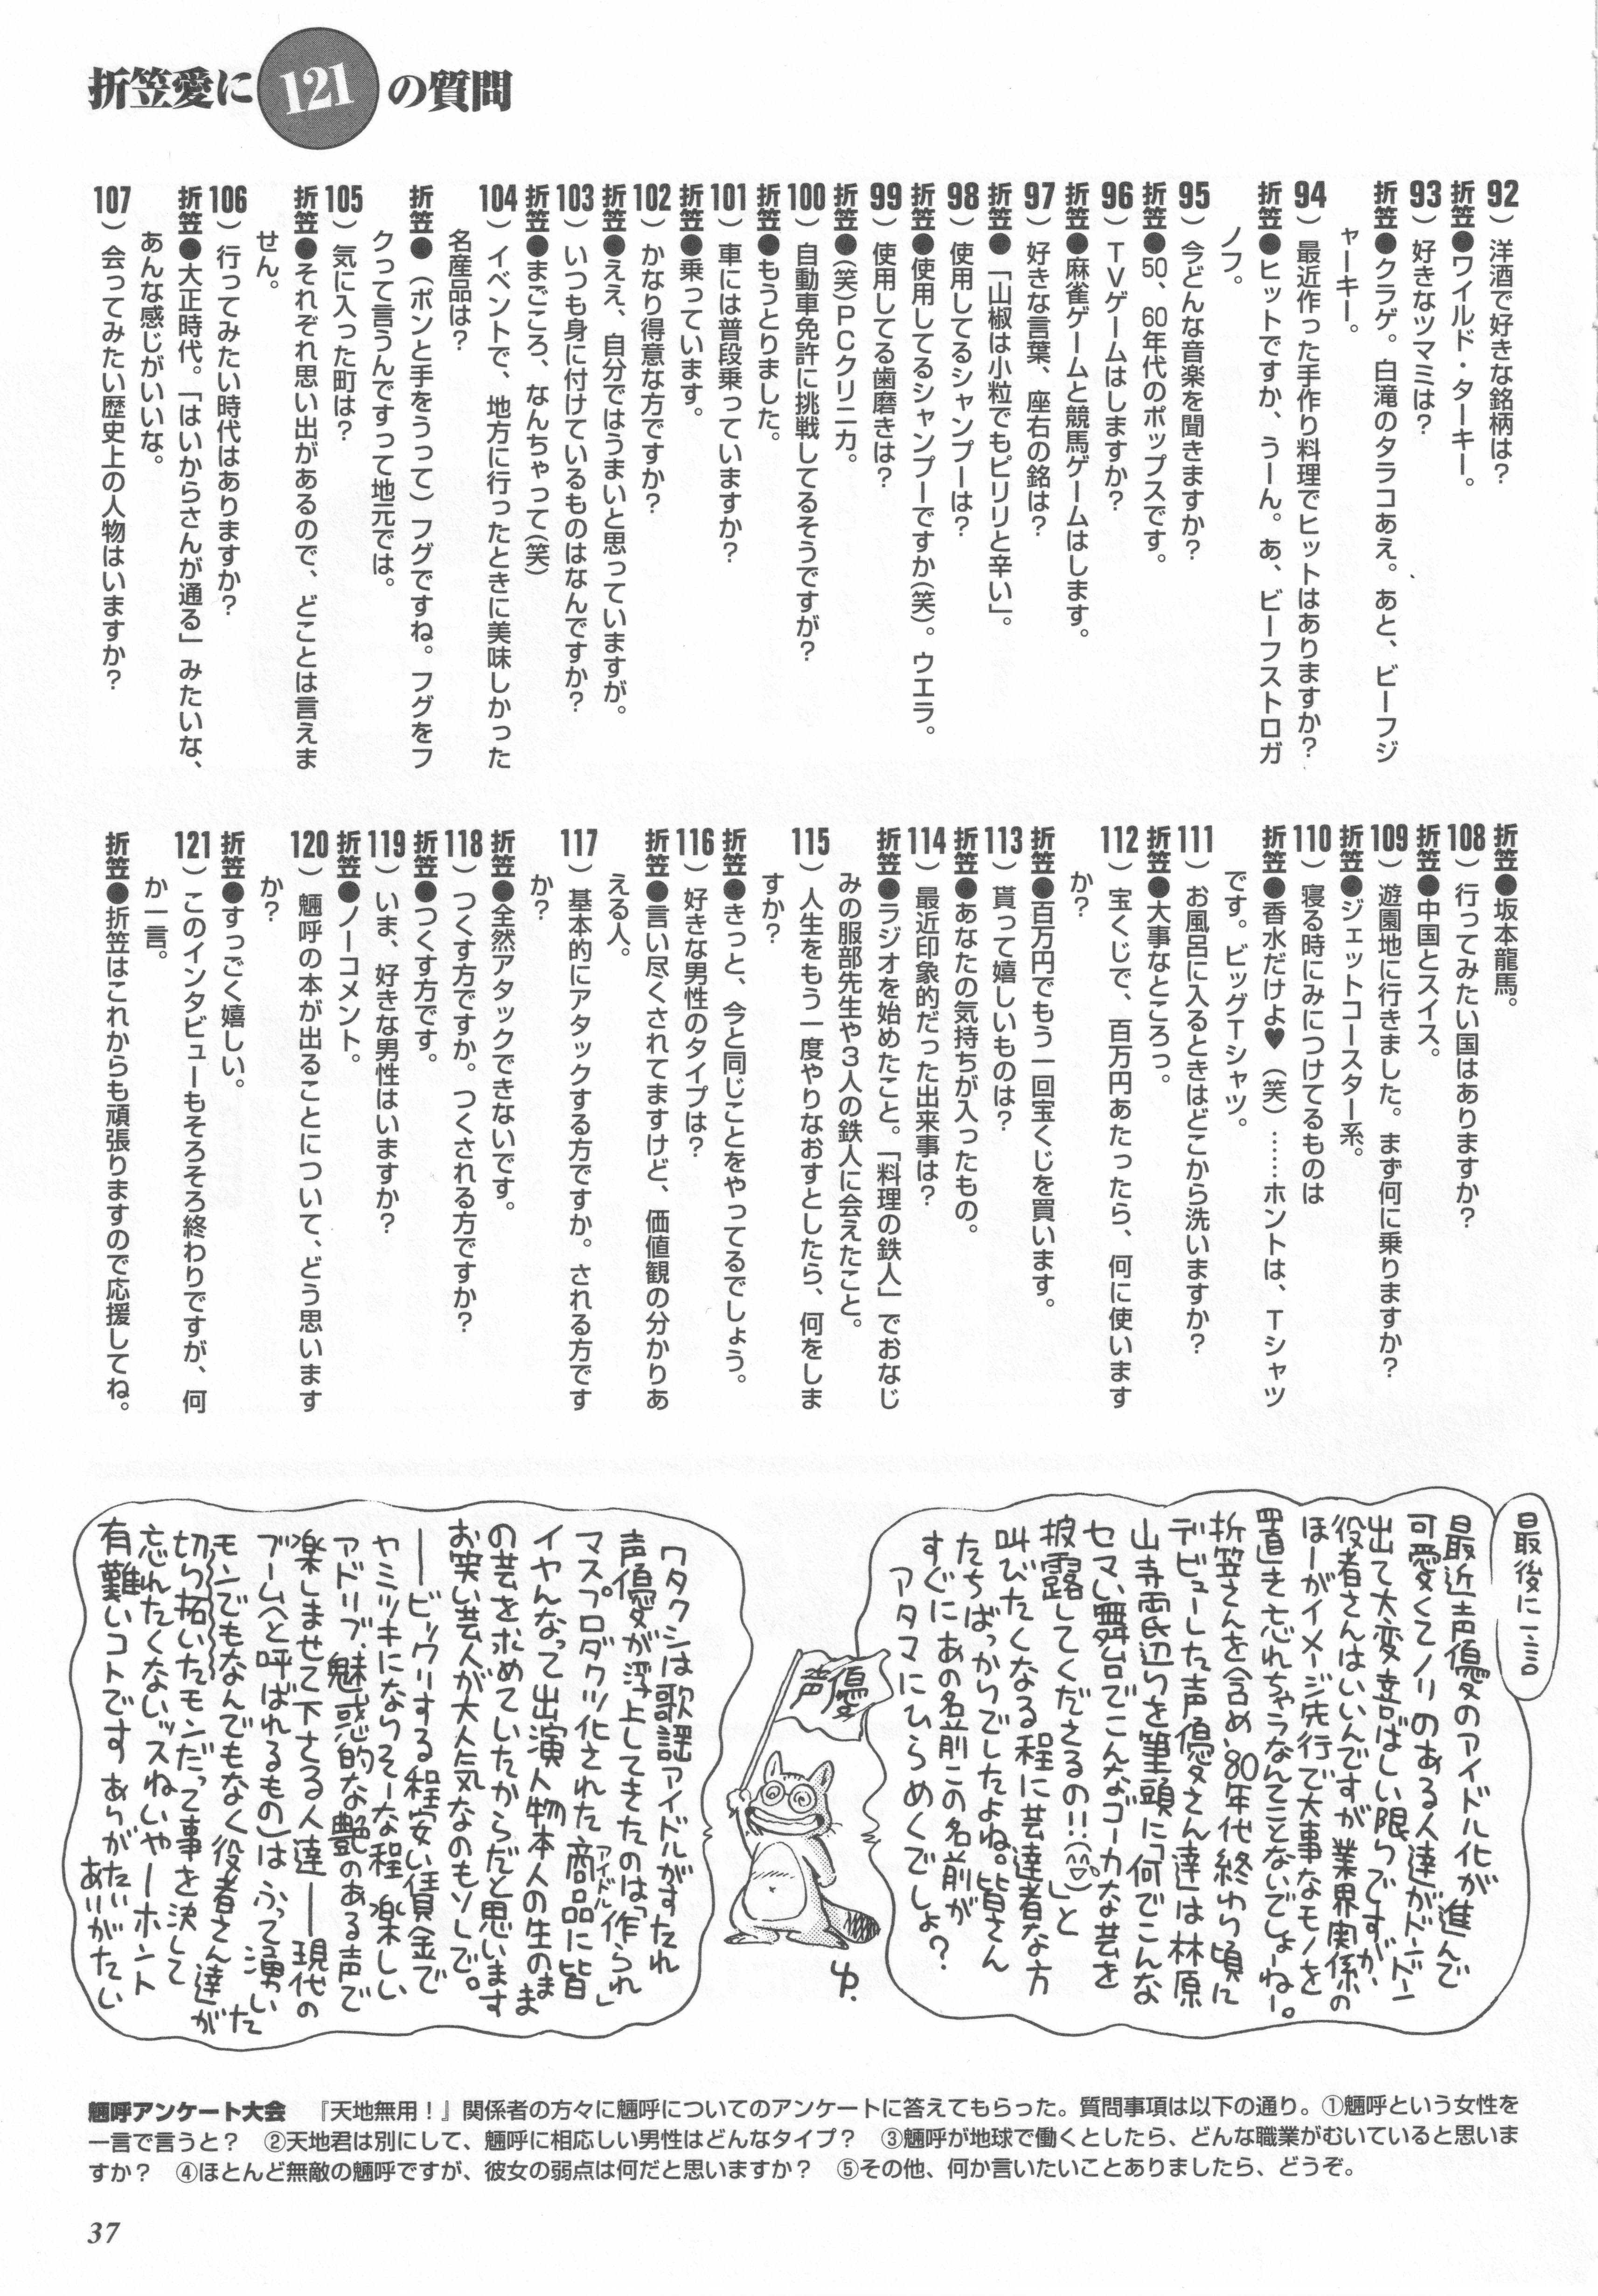 折笠愛に121の質問
92）洋酒で好きな銘柄は？
折笠●ワイルド・ターキー。
93）好きなツマミは？
折笠●クラゲ。白滝のタラコあえ。あと、ビーフジ
ャーキー。
94）最近作った手作り料理でヒットはありますか？
折笠●ヒットですか、うーん。あ、ビーフストロガ
ノフ。
95）今どんな音楽を聞きますか？
折笠●50、60年代のポップスです。
96）ＴＶゲームはしますか？
折笠●麻雀ゲームと競馬ゲームはします。
97）好きな言葉、座右の銘は？
折笠●「山椒は小粒でもピリリと辛い」。
98）使用してるシャンプーは？
折笠●使用してるシャンプーですか（笑）。ウエラ。
99）使用してる歯磨きは？
折笠●（笑）ＰＣクリニカ。
100）自動車免許に挑戦してるそうですが？
折笠●もうとりました。
101）車には普段乗っていますか？
折笠●乗っています。
102）かなり得意な方ですか？
折笠●ええ、自分ではうまいと思っていますが。
103）いつも身に付けているものはなんですか？
折笠●まごころ、なんちゃって（笑）
104）イベントで、地方に行ったときに美味しかった
名産品は？
折笠●（ポンと手をうって）フグですね。フグをフ
クって言うんですって地元では。
105）気に入った町は？
折笠●それぞれ思い出があるので、どことは言えま
せん。
106）行ってみたい時代はありますか？
折笠●大正時代。「はいからさんが通る」みたいな、
あんな感じがいいな。
107）会ってみたい歴史上の人物はいますか？
折笠●坂本龍馬。
108）行ってみたい国はありますか？
折笠●中国とスイス。
109）遊園地に行きました。まず何に乗りますか？
折笠●ジェットコースター系。
110）寝る時にみにつけてるものは
折笠●香水だけよ♥（笑）……ホントは、Ｔシャツ
です。ビッグＴシャツ。
111）お風呂に入るときはどこから洗いますか？
折笠●大事なところっ。
112）宝くじで、百万円あたったら、何に使います
か？
折笠●百万円でもう一回宝くじを買います。
113）貰って嬉しいものは？
折笠●あなたの気持ちが入ったもの。
114）最近印象的だった出来事は？
折笠●ラジオを始めたこと。「料理の鉄人」でおなじ
みの服部先生や３人の鉄人に会えたこと。
115）人生をもう一度やりなおすとしたら、何をしま
すか？
折笠●きっと、今と同じことをやってるでしょう。
116）好きな男性のタイプは？
折笠●言い尽くされてますけど、価値観の分かりあ
える人。
117）基本的にアタックする方ですか。される方です
か？
折笠●全然アタックできないです。
118）つくす方ですか。つくされる方ですか？
折笠●つくす方です。
119）いま、好きな男性はいますか？
折笠●ノーコメント。
120）魎呼の本が出ることについて、どう思います
か？
折笠●すっごく嬉しい。
121）このインタビューもそろそろ終わりですが、何
か一言。
折笠●折笠はこれからも頑張りますので応援してね。
最後に一言
最近声優のアイドル化が進んで
可愛くてノリのある人達がドンドン
出て大変喜ばしい限りですが、
役者さんはいいんですが業界関係の
ほーがイメージ先行で大事なモノを
置き忘れちゃうなんてことないでしょーねー。
折笠さんを含め、80年代終わり頃に
デビューした声優さん達は林原
山寺両氏辺りを筆頭に「何でこんな
セマい舞台でこんなゴーカな芸を
披露してくださるの!!(^^)」と
叫びたくなる程に芸達者な方
たちばっかりでしたよね。皆さん
すぐにあの名前この名前が
アタマにひらめくでしょ？
声優
ゆ.
ワタクシは歌謡アイドルがすたれ
声優が浮上してきたのは「作られ」
マスプロダクツ化された商品に皆
アイドル
イヤんなって出演人物本人の生のまま
の芸を求めていたからだと思います
お笑い芸人が大人気なのもソレで。
――ビックリする程安い賃金で
ヤミツキになりそーな程楽しい
アドリブ、魅惑的な艶のある声で
楽しませて下さる人達――現代の
ブーム（と呼ばれるもの）はふって湧いた
モンでもなんでもなく役者さん達が
切り拓いたモンだって事を決して
忘れたくないッスねいやーホント
有難いコトです ありがたいありがたい
魎呼アンケート大会　『天地無用！』関係者の方々に魎呼についてのアンケートに答えてもらった。質問事項は以下の通り。①魎呼という女性を
一言で言うと？　②天地君は別にして、魎呼に相応しい男性はどんなタイプ？　③魎呼が地球で働くとしたら、どんな職業がむいていると思いま
すか？　④ほとんど無敵の魎呼ですが、彼女の弱点は何だと思いますか？　⑤その他、何か言いたいことありましたら、どうぞ。
37